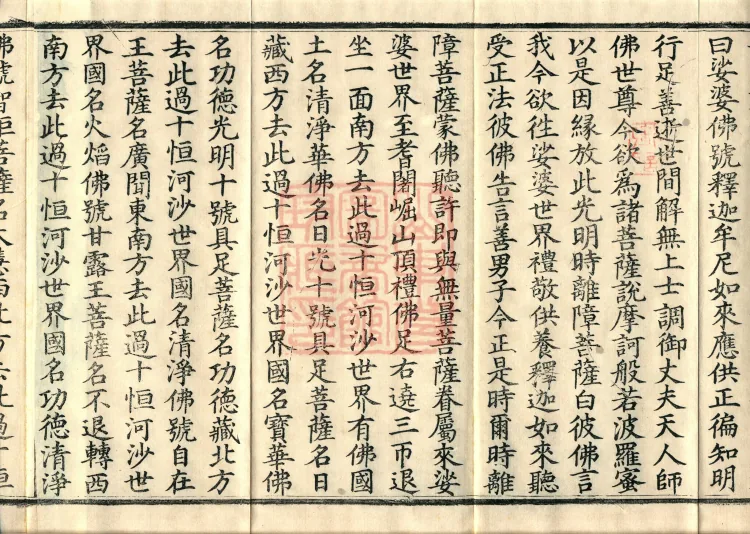 曰娑婆佛號釋迦牟尼如來應供正徧知明
行足善逝世間解無上士調御丈夫天人師
佛世尊今欲爲諸菩薩說摩訶般若波羅蜜
以是因緣放此光明時離障菩薩白彼佛言
我今欲徃娑婆世界禮敬供養釋迦如來聽
受正法彼佛告言善男子今正是時爾時離
障菩薩蒙佛聽許即與無量菩薩眷屬來娑
婆世界至耆闍崛山頂禮佛足右遶三帀退
坐一面南方去此過十恒河沙世界有佛國
土名清淨華佛名日光十號具足菩薩名日
藏西方去此過十恒河沙世界國名寶華佛
名功德光明十號具足菩薩名功德藏北方
去此過十恒河沙世界國名清淨佛號自在
王菩薩名廣聞東南方去此過十恒河沙世
界國名火焰佛號甘露王菩薩名不退轉西
南方去此過十恒河沙世界國名功德清淨
佛號智炬菩薩名大慧西北方去此過十恒